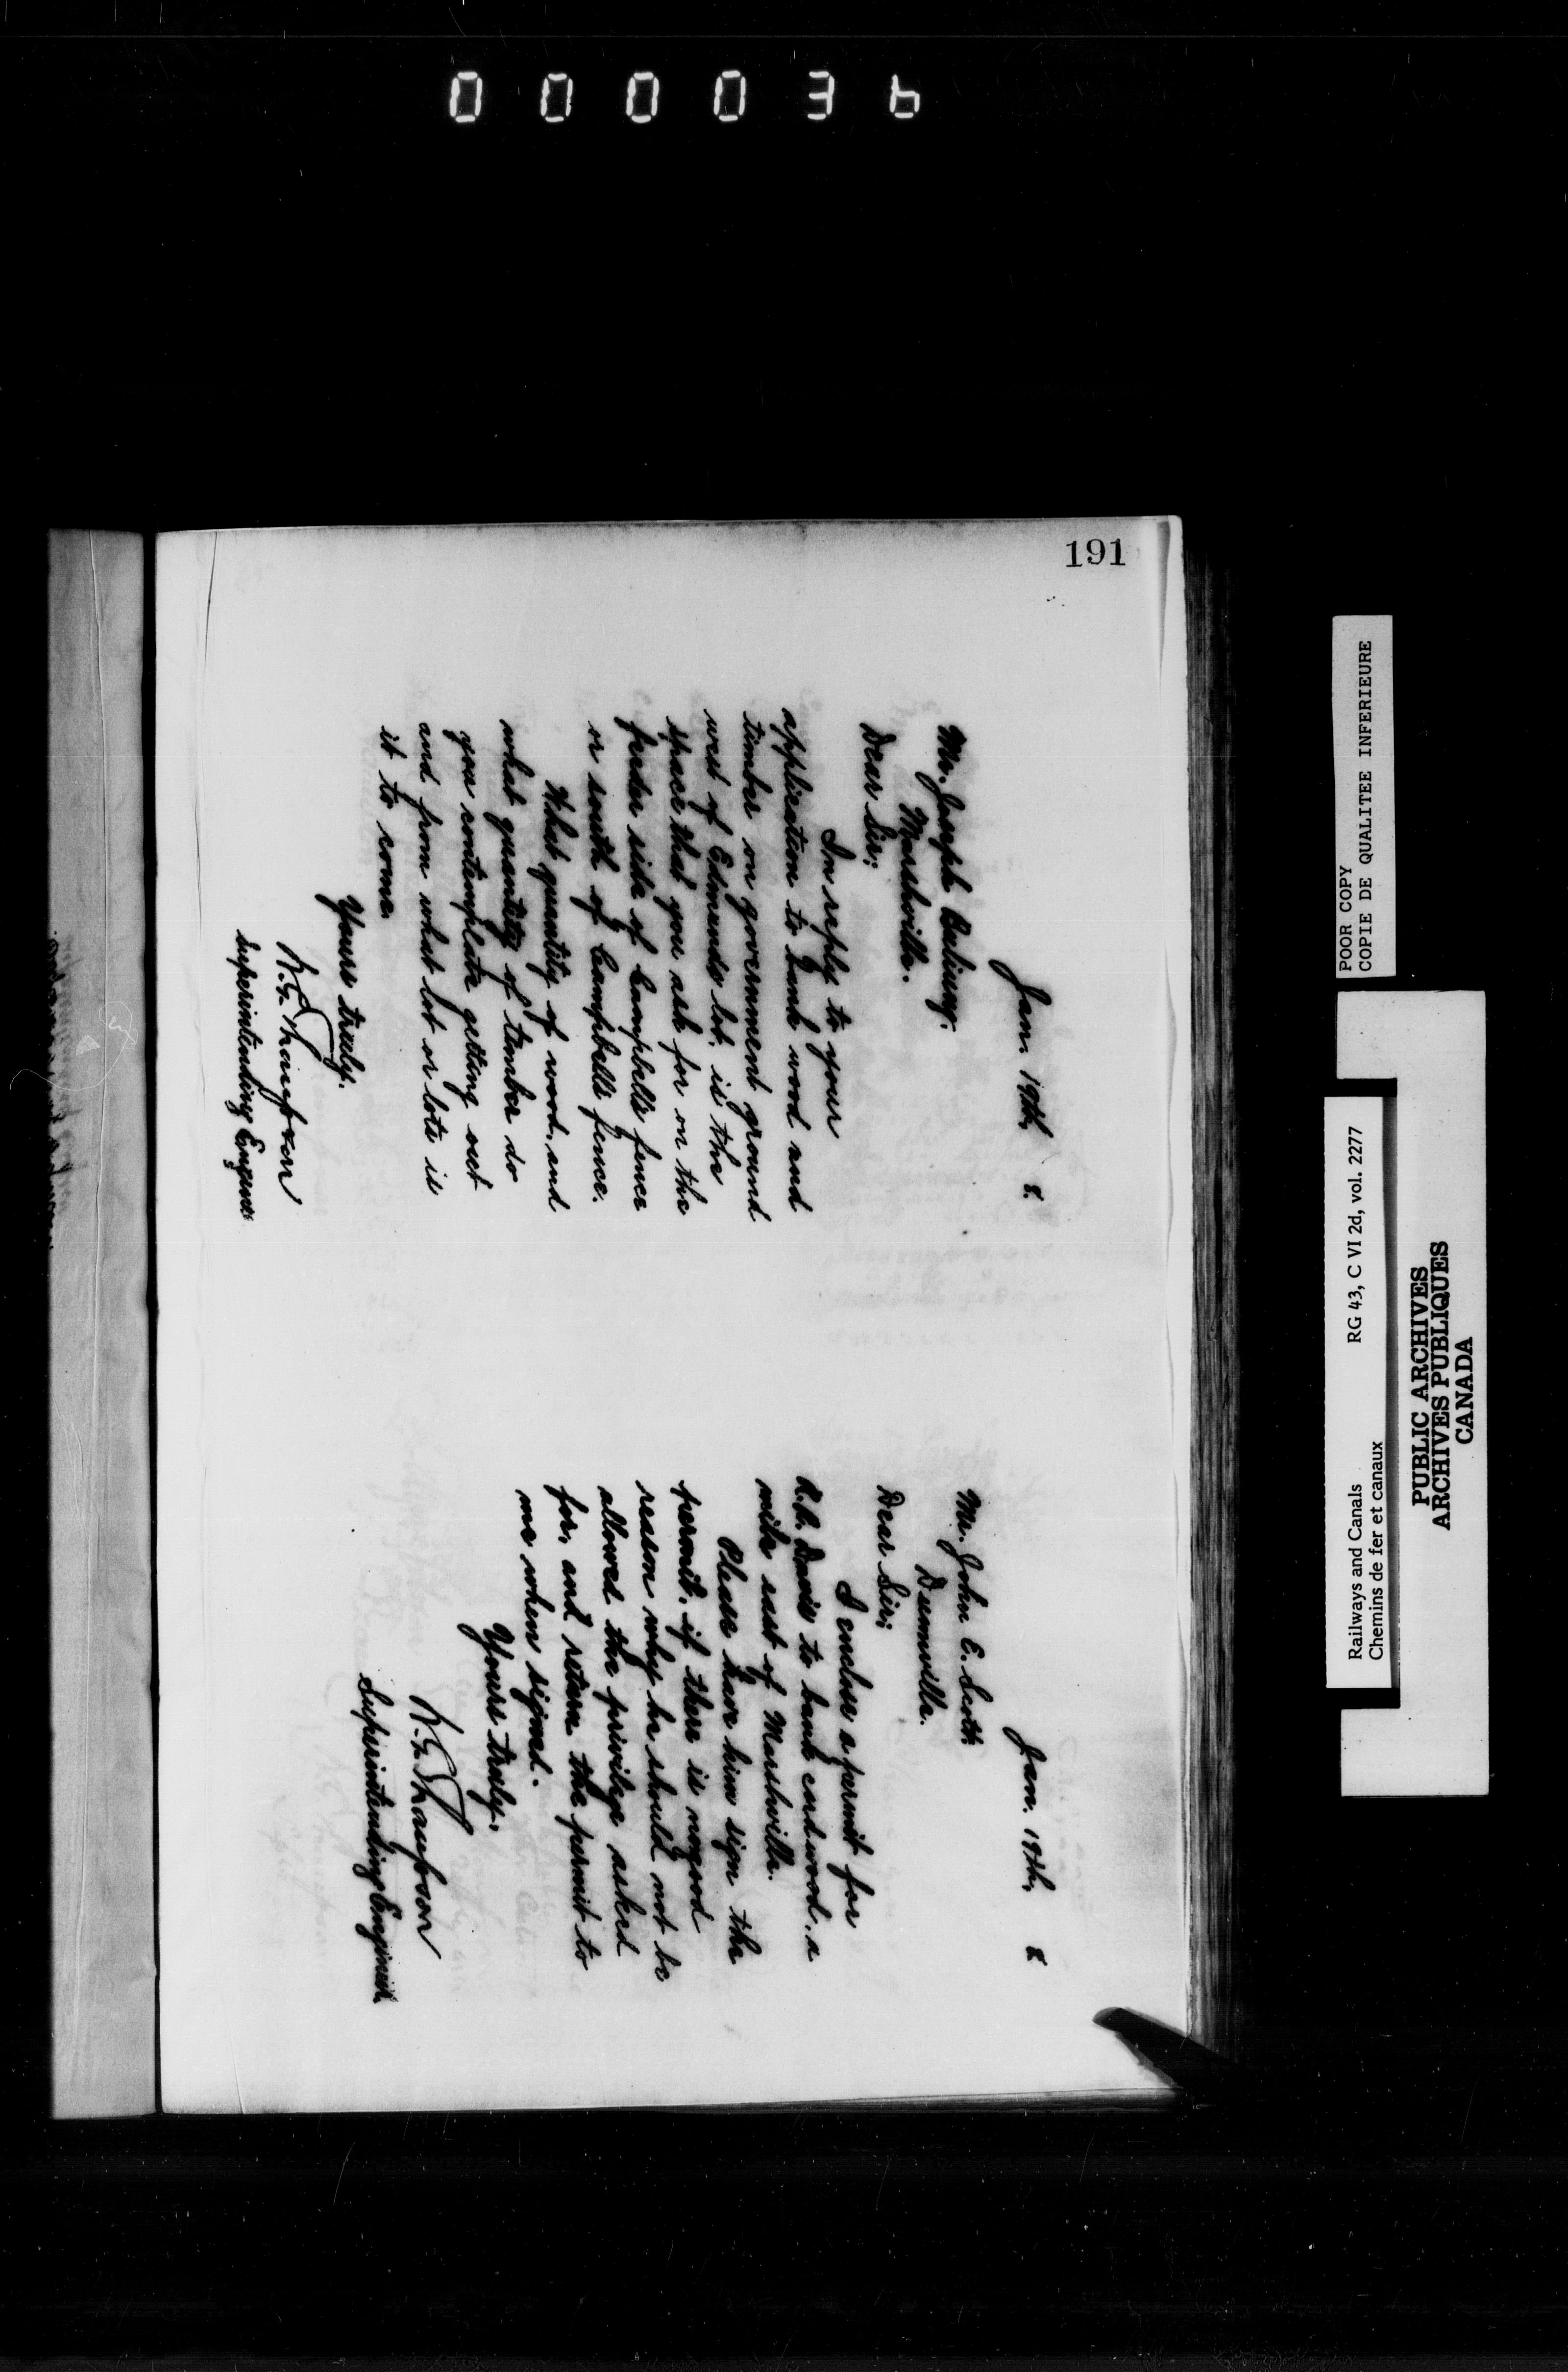 000036
191
Jan. 19th 8.
Mr. Joseph
Marshville.
Dear Sir;
In reply to your
application to bank wood and
timber on government ground
west of Edmunds lot, is the
space that you ask for on the
feeder side of Campbells fence
or south of Campbells fence.
What quantity of wood, and
what quantity of timber do
you contemplate getting out
and from what lot or lots is
it to come.
Yours truly.
Superintending Engineer
Jan. 19th, 8
Mr. John E. Scott
Dunnville.
Dear Sir;
I enclose a permit for
Davis to bank cordwood, a
mile east of Marshville.
Please have him sign the
permit, if there is no good
reason why he should not be
allowed the privilege asked
for, and return the permit to
me when signed.
Yours truly.
Superintending Engineer.
POOR COPY
COPIE DE QUALITEE INFERIEURE
Railways and Canals RG 43, C VI 2d, vol. 2277
Chemins de fer et canaux
PUBLIC ARCHIVES
ARCHIVES PUBLIQUES
CANADA